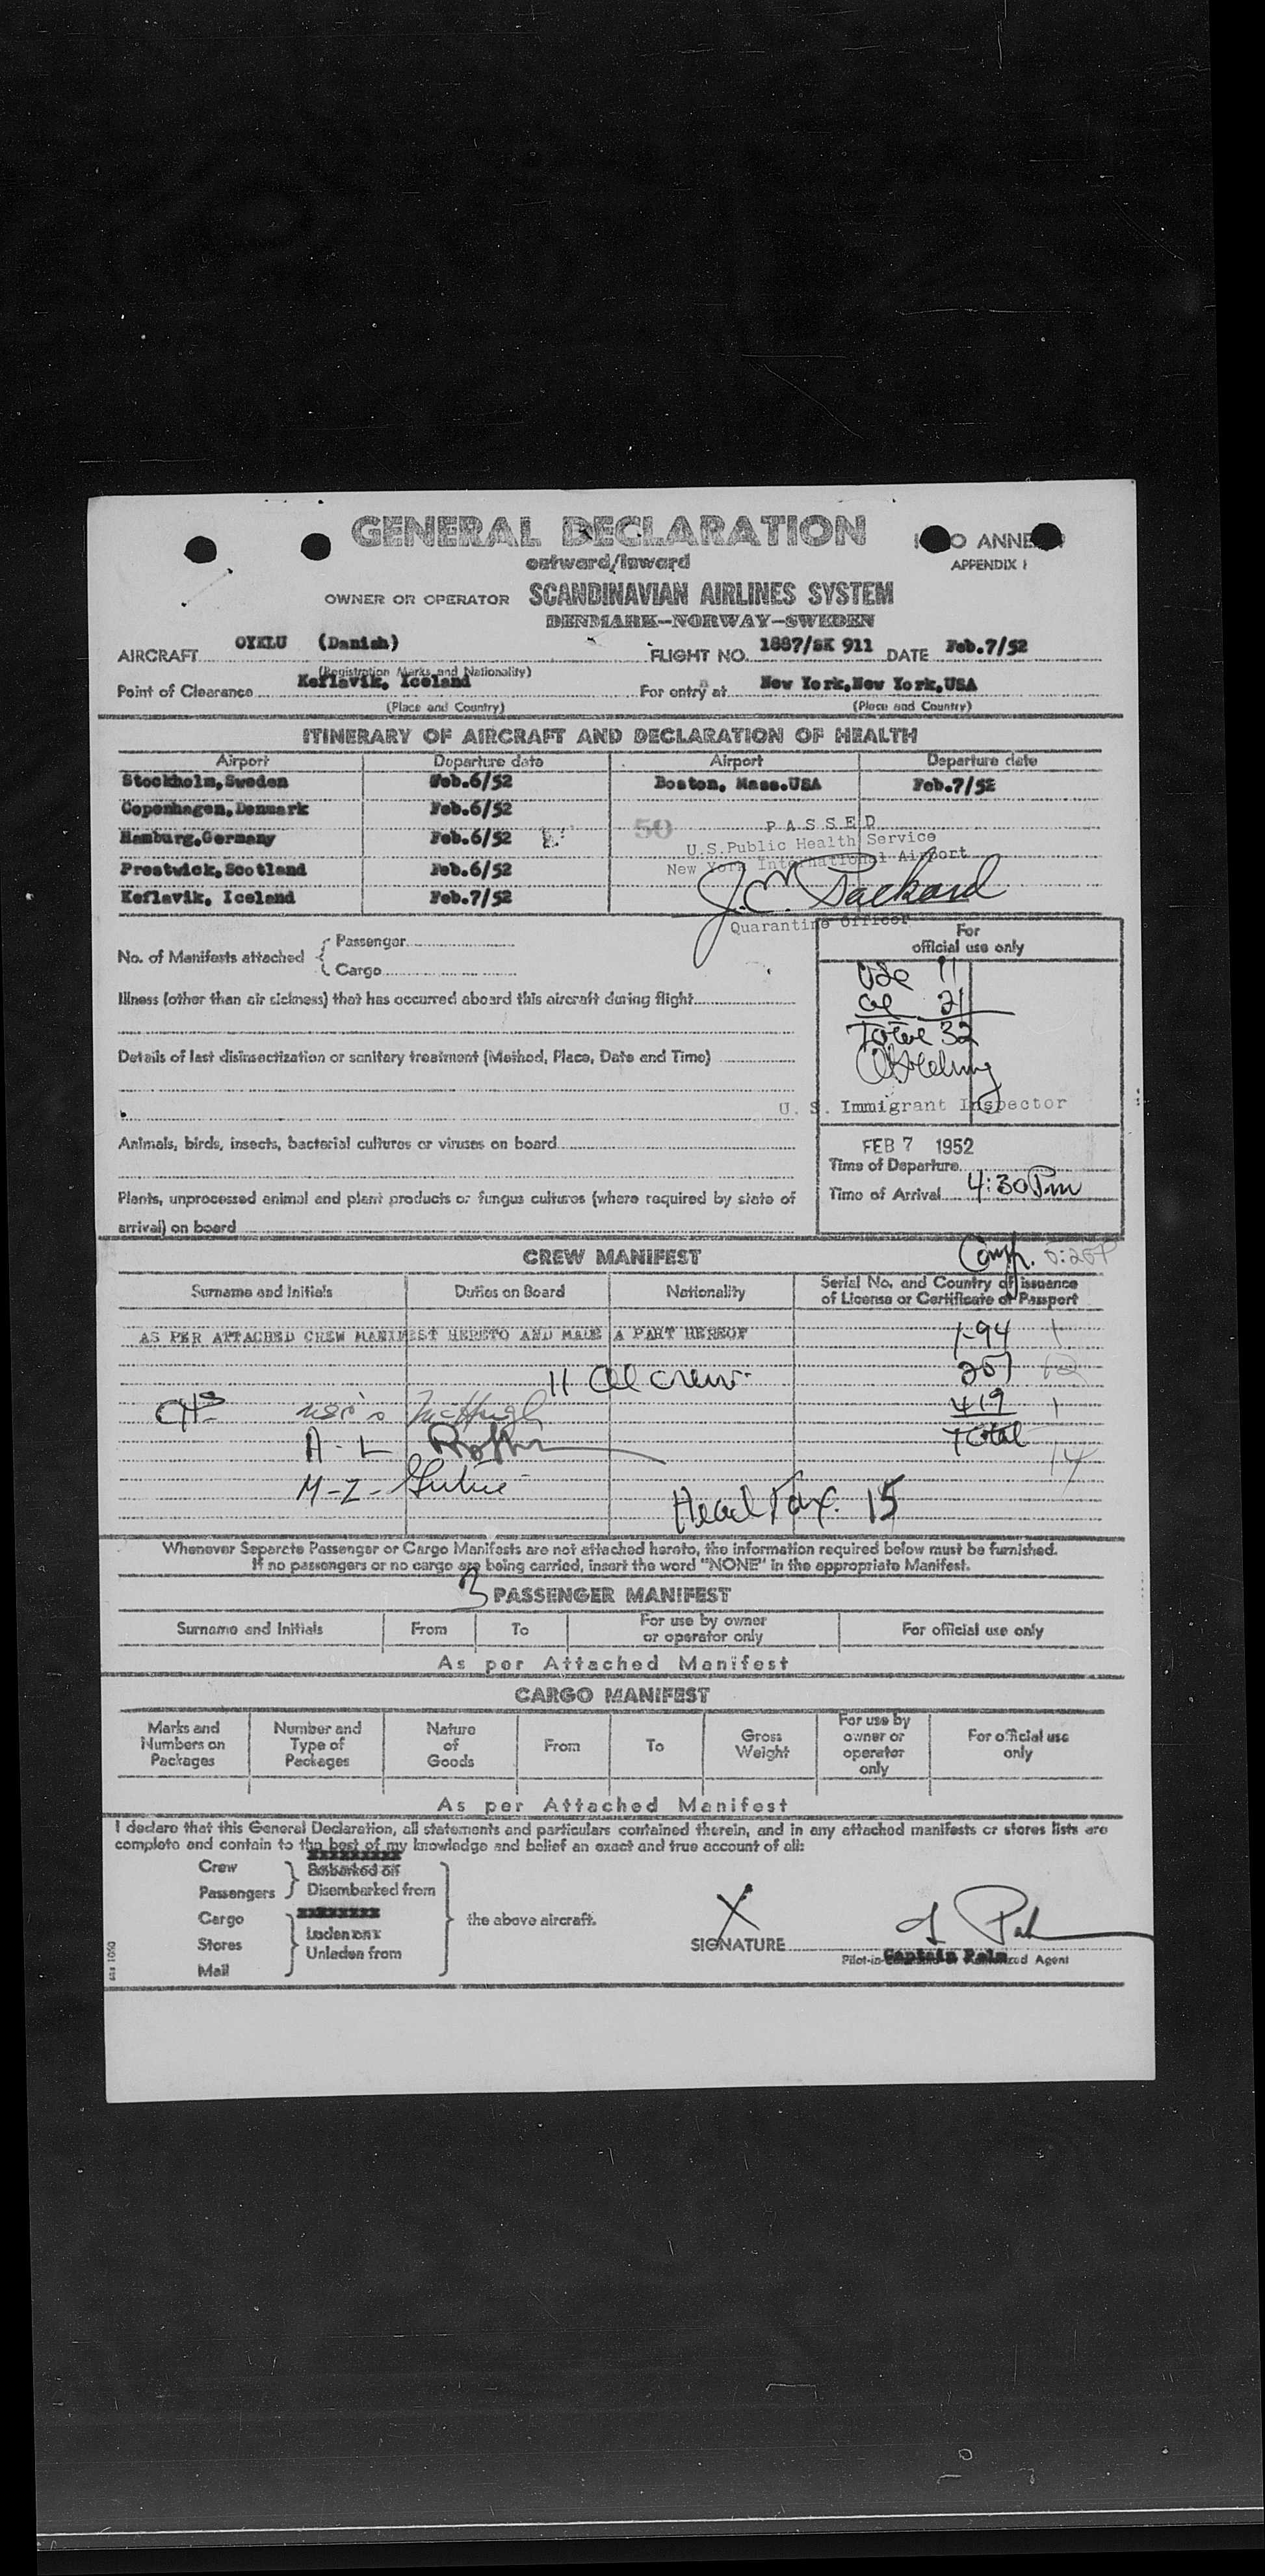 GENERAL DECLARATION
O ANNE
outward/inward
APPENDIX 1
OWNER OR OPERATOR SCANDINAVIAN AIRLINES SYSTEM
DENMARK—NORWAY—SWEDEN
AIRCRAFT OYKLU (Danish) FLIGHT NO. 1887/SK 911 DATE Feb.7/52
(Registration Marks and Nationality)
Point of Clearance Keflavik, Iceland For entry at New York,New York,USA
(Place and Country) (Place and Country)
ITINERARY OF AIRCRAFT AND DECLARATION OF HEALTH
Airport Departure date Airport Departure date
Stockholm,Sweden Feb.6/52 Boston, Mass.USA Feb.7/52
Copenhagen,Denmark Feb.6/52
Hamburg,Germany Feb.6/52 50 PASSED
U.S.Public Health Service
Prestwick,Scotland Feb.6/52 New York International Airport
Keflavik, Iceland Feb.7/52 J. Packard
Quarantine Officer
For
official use only
No. of Manifests attached Passenger
Cargo
USc 11
al 21
Total 32
Illness (other than air sickness) that has occurred aboard this aircraft during flight
Details of last disinsectization or sanitary treatment (Method, Place, Date and Time)
U. S. Immigrant Inspector
Animals, birds, insects, bacterial cultures or viruses on board
FEB 7 1952
Time of Departure
Time of Arrival 4:30 Pm
Plants, unprocessed animal and plant products or fungus cultures (where required by state of
arrival) on board
CREW MANIFEST
Comp.
Surname and Initials Duties on Board Nationality Serial No. and Country of issuance
of License or Certificate or Passport
AS PER ATTACHED CREW MANIFEST HERETO AND MADE A PART HEREOF
I-94 1
11 al crew
257 12
McHugh 419 1
A-L Total 14
M-Z-
Head Tax. 15
Whenever Separate Passenger or Cargo Manifests are not attached hereto, the information required below must be furnished.
If no passengers or no cargo are being carried, insert the word "NONE" in the appropriate Manifest.
3 PASSENGER MANIFEST
Surname and Initials From To For use by owner or operator only For official use only
As per Attached Manifest
CARGO MANIFEST
Marks and Numbers on Packages Number and Type of Packages Nature of Goods From To Gross Weight For use by owner or operator only For official use only
As per Attached Manifest
I declare that this General Declaration, all statements and particulars contained therein, and in any attached manifests or stores lists are
complete and contain to the best of my knowledge and belief an exact and true account of all:
Crew Embarked on
Passengers Disembarked from
Cargo xxxxxxxx the above aircraft.
Stores Laden on
Unladen from
Mail
SIGNATURE X
Captain Palm
Pilot-in-Command or Authorized Agent
sas 1050